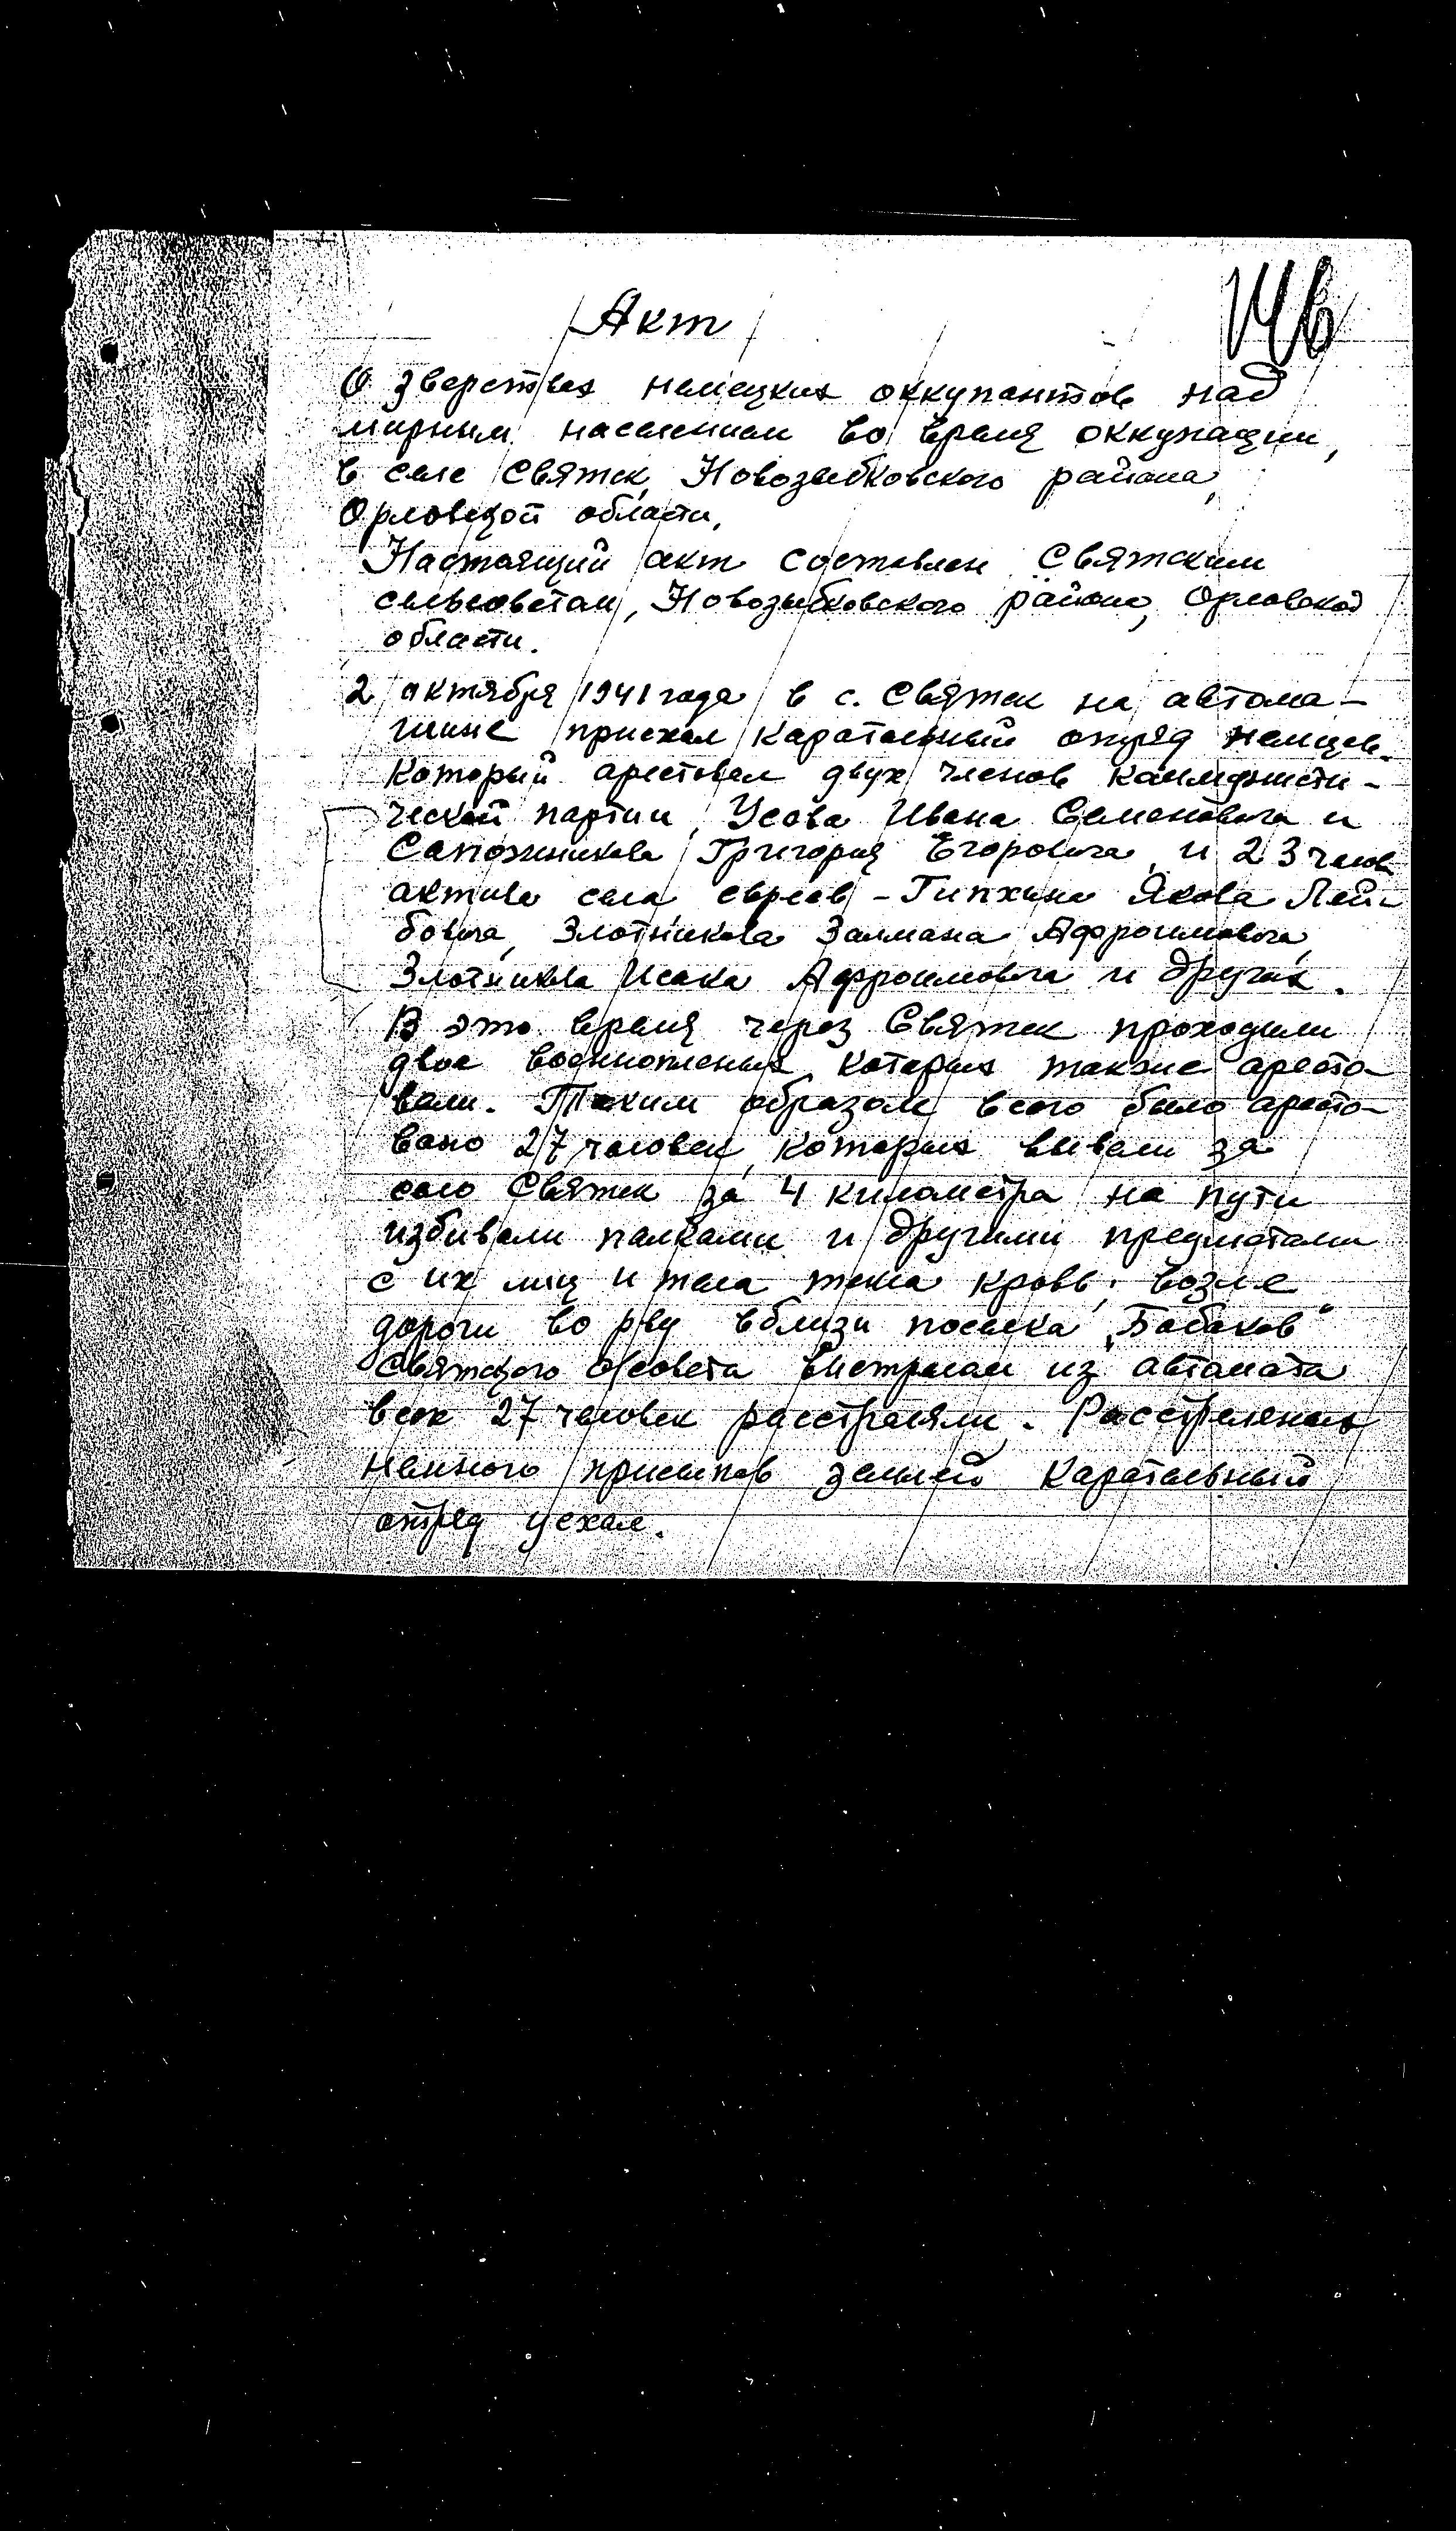 146
Акт
О зверствах немецких оккупантов над
мирным населением во время оккупации,
в селе Святск, Новозыбковского района,
Орловской области.
Настоящий акт составлен Святским
сельсоветом, Новозыбковского района, Орловской
области.
2 октября 1941 года в с. Святск на автома-
шине приехал карательный отряд немцев.
который арестовал двух членов коммунисти-
ческой партии, Усова Ивана Семеновича и
Сапожникова Григория Егоровича, и 23 челов.
актива села евреев - Гипхина Якова Лей-
бовича, Злотникова Залмана Афроимовича,
Злотникова Исака Афроимовича и других.
В это время через Святск проходили
двое военнопленных, которых также аресто-
вали. Таким образом всего было аресто-
вано 27 человек, которых вывели за
село Святск за 4 километра на пути
избивали палками и другими предметами
с их лиц и тела текла кровь, возле
дороги во рву вблизи поселка „Бабаков"
Святского с/совета выстрелом из автомата
всех 27 человек расстреляли. Расстреляных
немного присыпав землей карательный
отряд уехал.